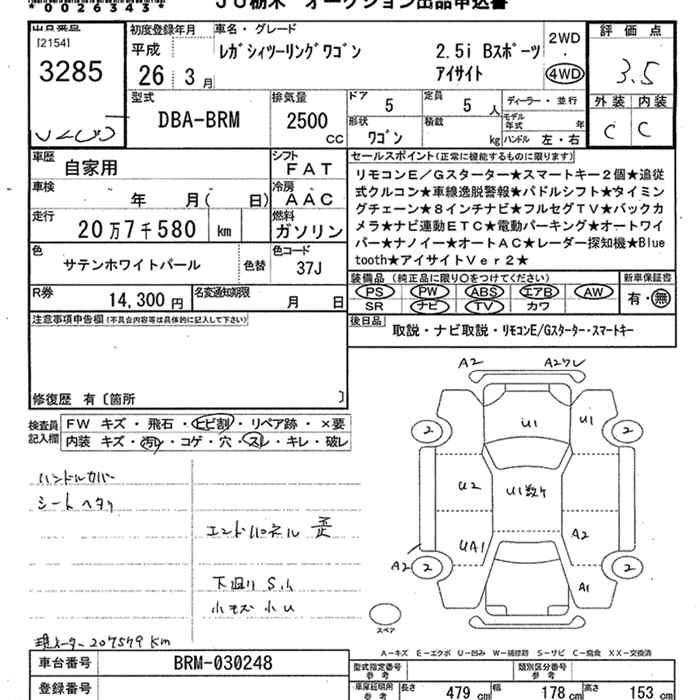 *0026343*
JU栃木 オークション出品申込書
出品番号
[2154]
3285
初度登録年月
平成
26 3月
車名・グレード
レガシィツーリングワゴン 2.5i Bスポーツ
アイサイト
2WD
・
4WD
評価点
3.5
外装 内装
C C
型式
DBA-BRM
排気量
2500
CC
ドア
5
定員
5 人
形状
ワゴン
積載
kg
ディーラー・並行
モデル年式 年
ハンドル 左・右
車歴
自家用
シフト
FAT
車検
年 月( 日)
冷房
AAC
走行
20万7千580 km
燃料
ガソリン
色
サテンホワイトパール
色替
色コード
37J
R券
14,300円
名変通知期限
月 日
セールスポイント(正常に機能するものに限ります)
リモコンE/Gスターター★スマートキー2個★追従
式クルコン★車線逸脱警報★パドルシフト★タイミン
グチェーン★8インチナビ★フルセグTV★バックカ
メラ★ナビ連動ETC★電動パーキング★オートワイ
パー★ナノイー★オートAC★レーダー探知機★Blue
tooth★アイサイトVer2★
装備品 (純正品に限り○をつけてください)
PS PW ABS エアB AW
SR ナビ TV カワ
新車保証書
有・無
後日品
取説・ナビ取説・リモコンE/Gスターター・スマートキー
注意事項申告欄(不具合内容等は具体的に記入して下さい)
修復歴 有〔箇所 〕
検査員
記入欄
FW キズ・飛石・ヒビ割・リペア跡・×要
内装 キズ・汚レ・コゲ・穴・スレ・キレ・破レ
ハンドルカバー
シートヘタリ
エンドパネル 歪
下廻り S.小
小キズ 小U
現メーター207579Km
A2
A2ワレ
2
U1
U1
2
U2
U1数ケ
UA1
A2
A2
2
A1
2
スペア
A-キズ E-エクボ U-凹み W-補修跡 S-サビ C-腐食 XX-交換済
車台番号
BRM-030248
登録番号
型式指定番号
参考
類別区分番号
参考
車庫証明用
参考
長さ
479 cm
幅
178 cm
高さ
153 cm